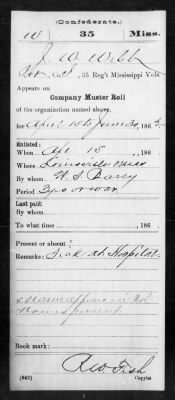 (Confederate.)
W 35 Miss.
J. W. Webb
Pvt, Co. , 35 Reg't Mississippi Vols.
Appears on
Company Muster Roll
of the organization named above,
for April 15 to June 30, 186
Enlisted:
When Apl 15, 186
Where Louisville Miss
By whom W. S. Barry
Period 3 yrs or war
Last paid:
By whom
To what time , 186
Present or absent?
Remarks: Sick at Hospital
Name appears in
Book mark:
R W Fish
(642) Copyist.